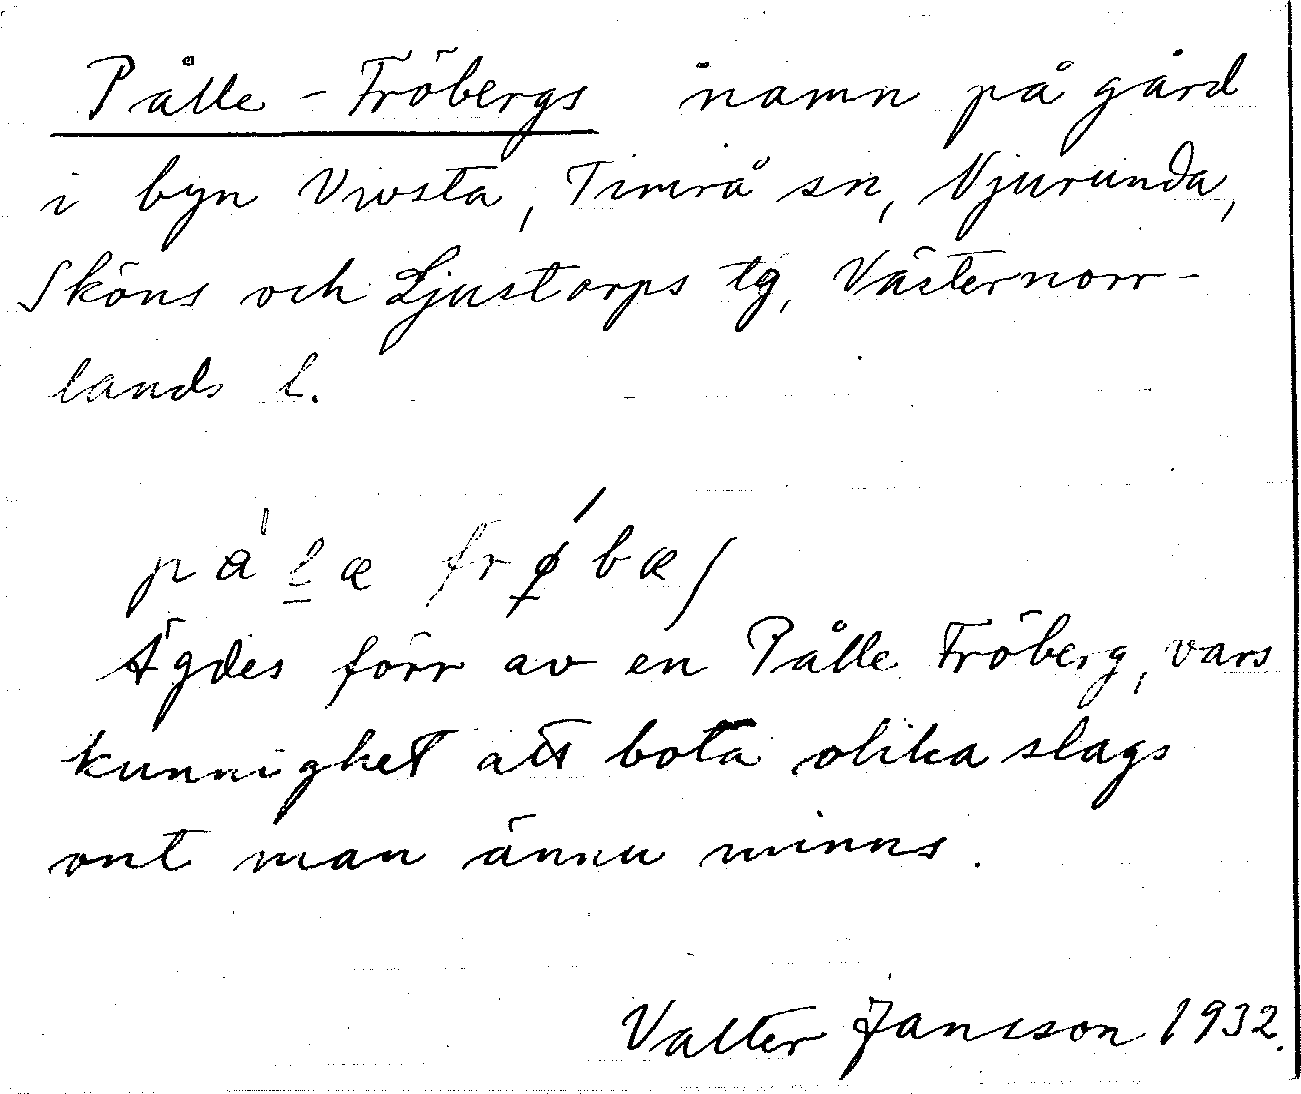 Pålle-Fröbergs namn på gård
i byn Vivsta, Timrå sn, Njurunda,
Sköns och Ljustorps tg, Västernorr-
lands l.
Ägdes förr av en Pålle Fröberg, vars
kunnighet att bota olika slags
ont man ännu minns.
Valter Jansson 1932.